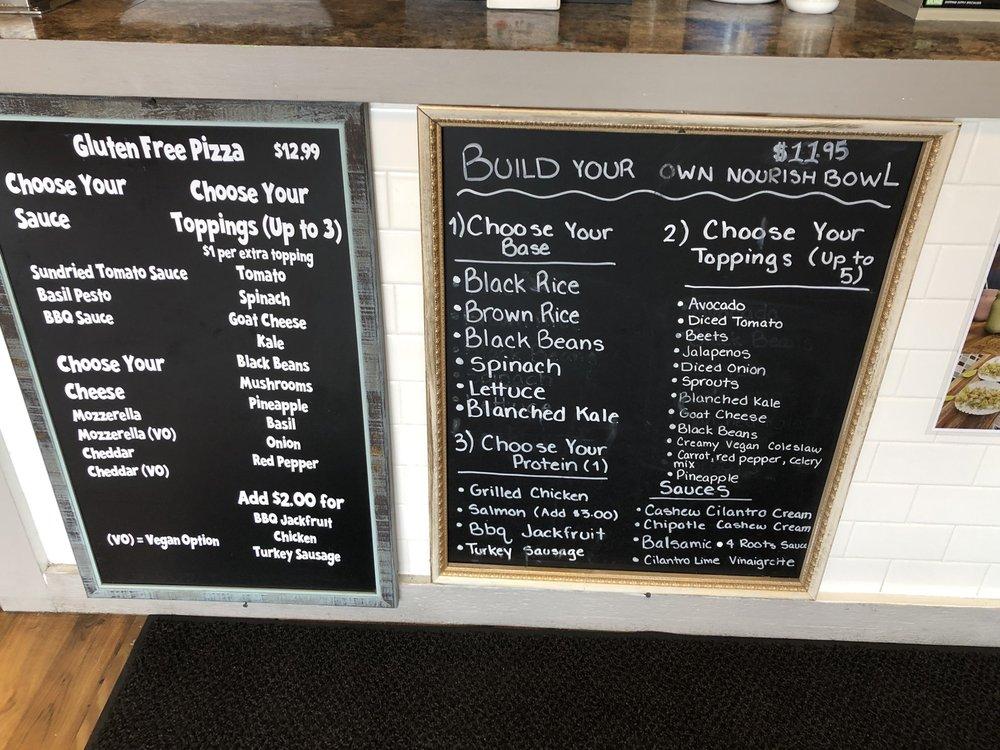 Gluten Free Pizza $12.99
Choose Your
Sauce
Sundried Tomato Sauce
Basil Pesto
BBQ Sauce
Choose Your
Cheese
Mozzerella
Mozzerella (VO)
Cheddar
Cheddar (VO)
(VO) = Vegan Option
Choose Your
Toppings (Up to 3)
$1 per extra topping
Tomato
Spinach
Goat Cheese
Kale
Black Beans
Mushrooms
Pineapple
Basil
Onion
Red Pepper
Add $2.00 for
BBQ Jackfruit
Chicken
Turkey Sausage
$11.95
BUILD YOUR OWN NOURISH BOWL
1) Choose Your
Base
• Black Rice
• Brown Rice
• Black Beans
• Spinach
• Lettuce
• Blanched Kale
2) Choose Your
Toppings (Up to
5)
• Avocado
• Diced Tomato
• Beets
• Jalapenos
• Diced Onion
• Sprouts
• Blanched Kale
• Goat Cheese
• Black Beans
• Creamy Vegan Coleslaw
• Carrot, red pepper, celery
mix
• Pineapple
3) Choose Your
Protein (1)
• Grilled Chicken
• Salmon (Add $3.00)
• Bbq Jackfruit
• Turkey Sausage
Sauces
• Cashew Cilantro Cream
• Chipotle Cashew Cream
• Balsamic • 4 Roots Sauce
• Cilantro Lime Vinaigrette